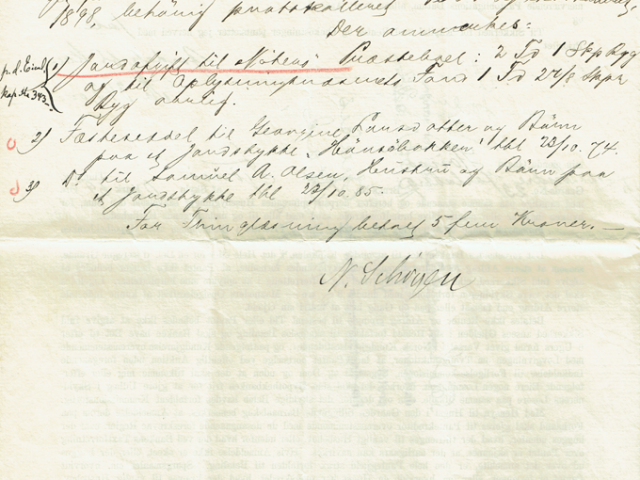 1/8 98, behörig protokolleret
Der anmærkes:
p.d. Eiend.
Kap. No 343.
1) Jordafgift til Præstebol: 2 Td 1 Skp Byg
og til Oplysningsvæsenets Fond 1 Td 2 Skpr
Byg
2) Fæsteseddel til Georgine Larsdatter og Børn
paa et Jordstykke "Hansebakken" tbl 23/10.74.
3) Do til Samuel A. Olsen, Hustru og Børn paa
et Jordstykke tbl 23/10.85.
For Thinglæsning betalt 5 fem Kroner.—
N. Schöyen